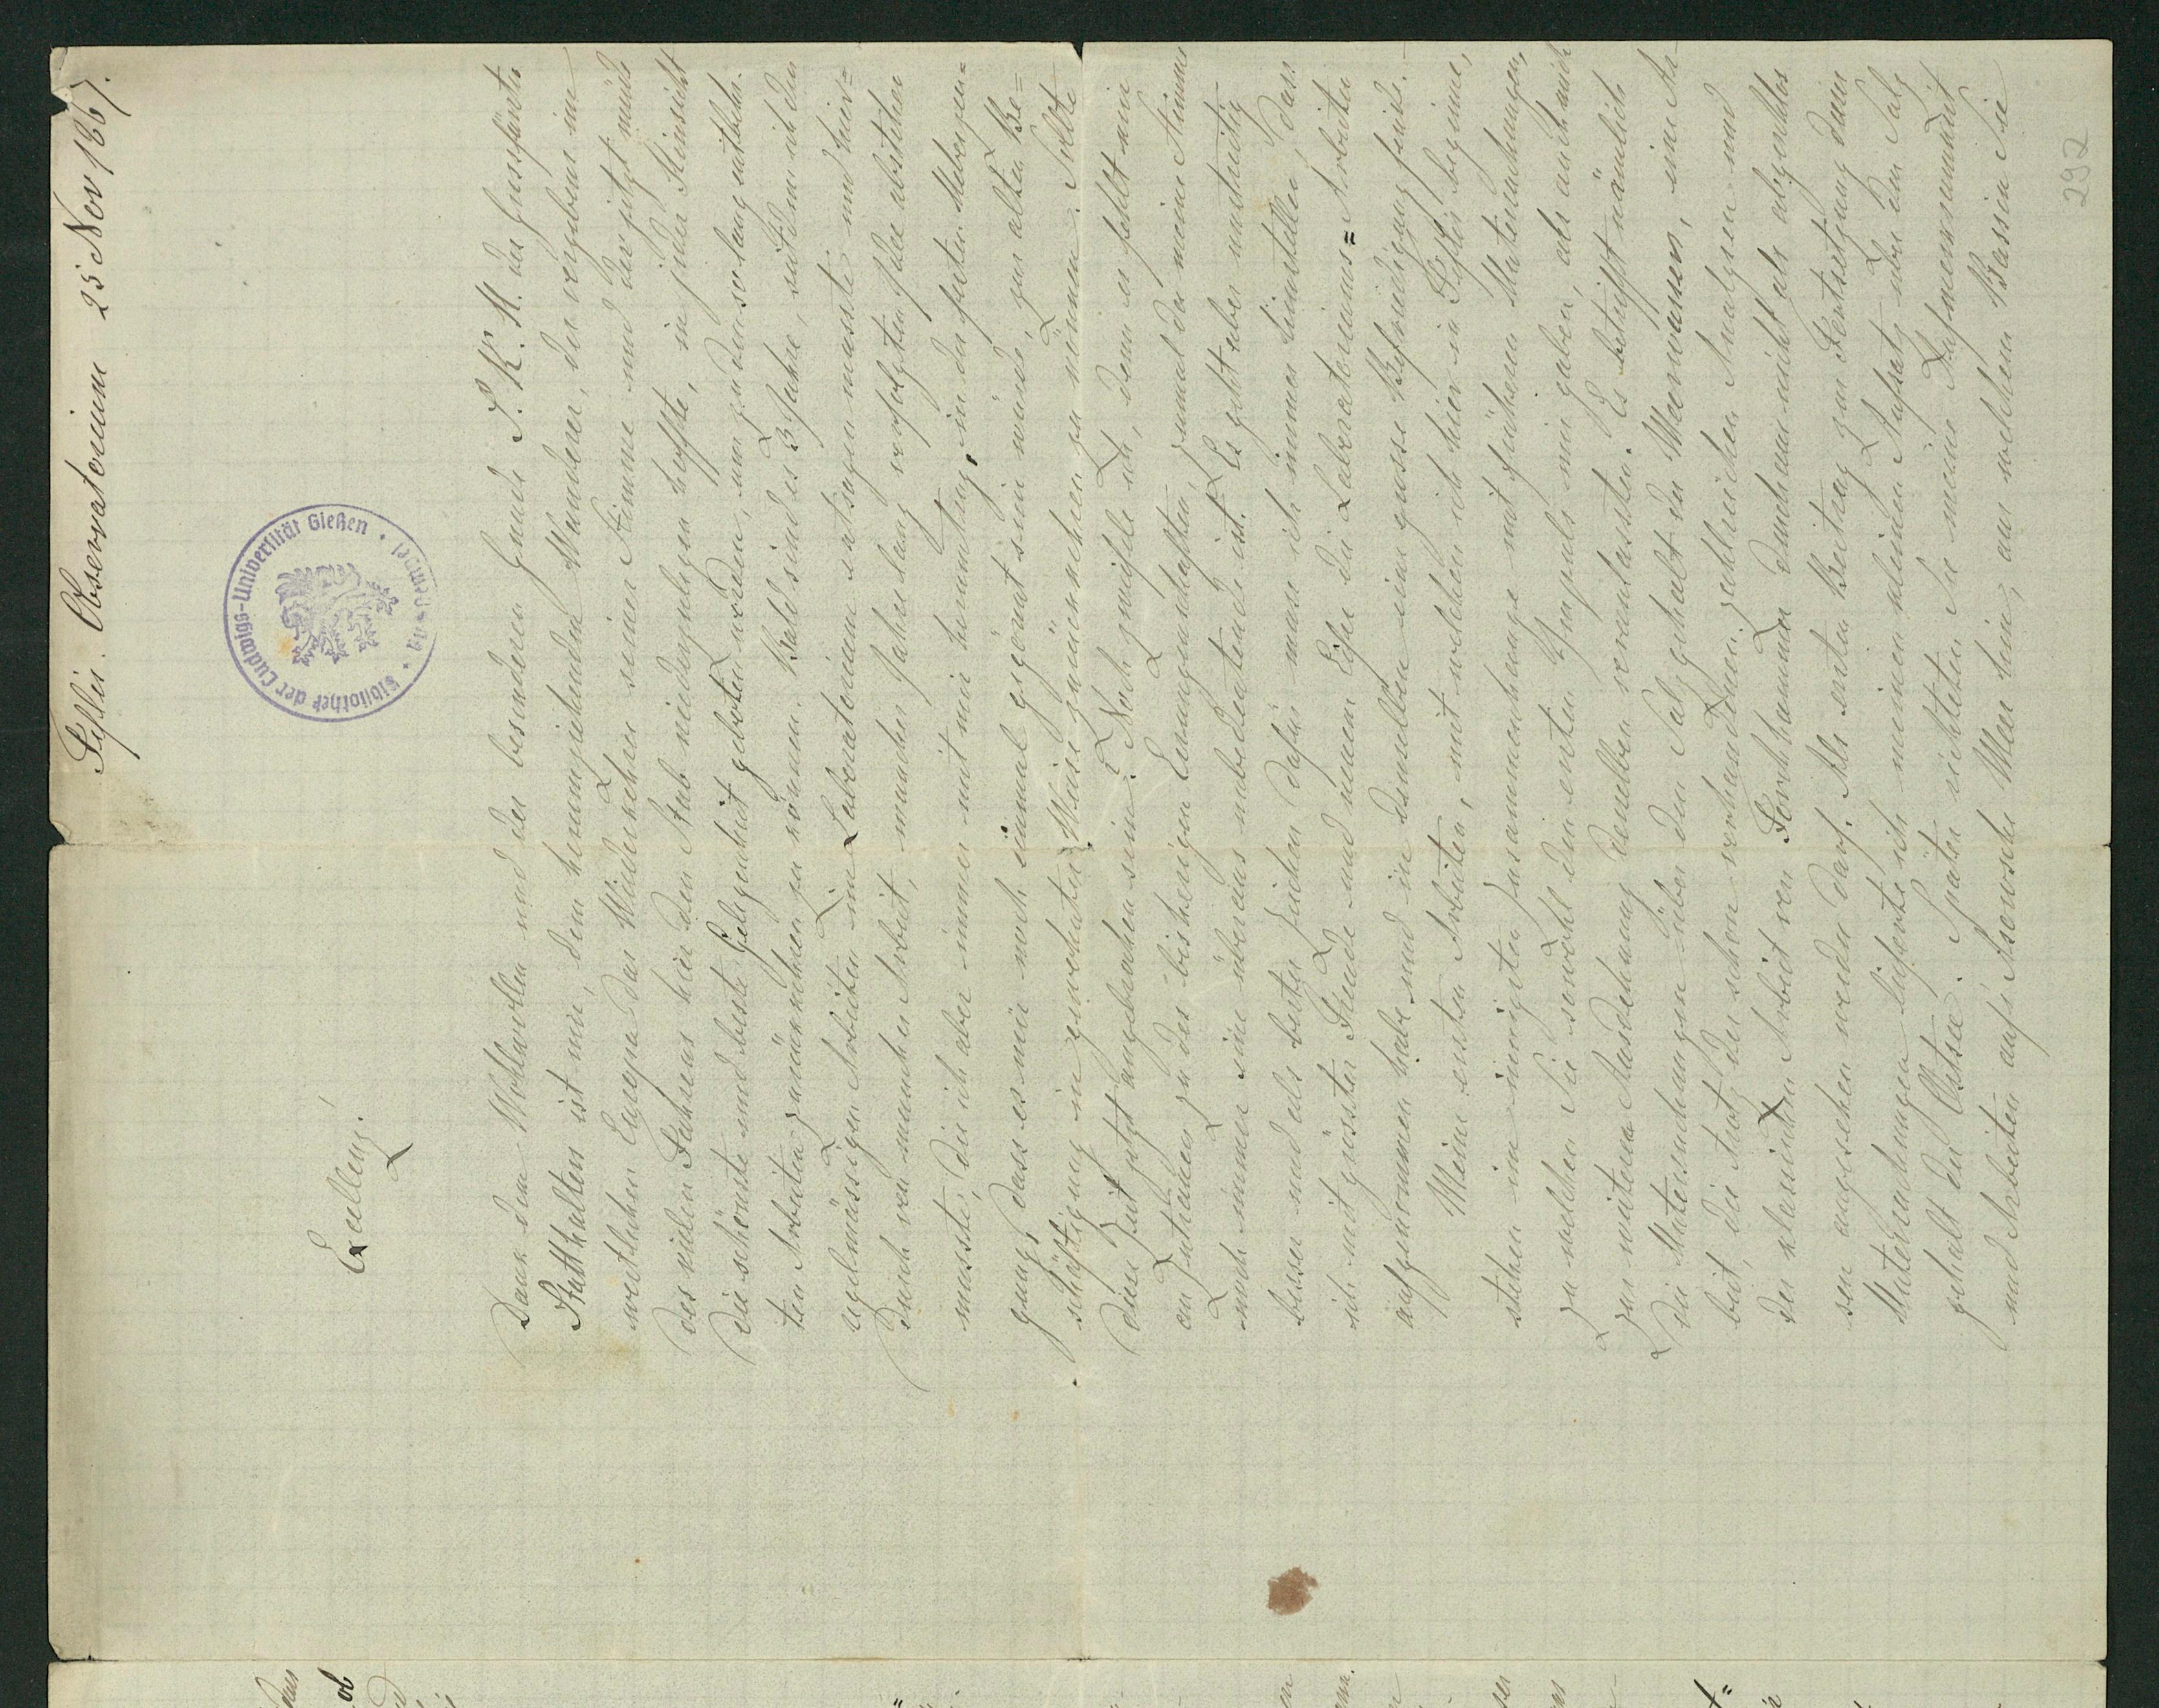 Tiflis. Observatorium 25 Nov 1867.
Bibliothek der Ludwigs-Universität Gießen · Darmstadt ·
Excellenz!
Dank dem Wohlwollen und der besonderen Gnade S. K. H. des Grossfürsten
Statthalters ist mir, dem herumziehenden Wanderer, der vergebens im
westlichen Europa das Wiederkehren seiner Stimme und der jetzt müde
des vielen Fahrens hier den Stab niederzulegen hoffte, in jeder Hinsicht
die schönste und beste Gelegenheit geboten worden um zu den so lang entbehr-
ten Arbeiten zurückkehren zu können. Bald sind es 3 Jahre, seitdem ich den
regelmässigen Arbeiten im Laboratorium entsagen musste und hier-
durch von mancher Arbeit, mancher Jahre lang verfolgten Idee abstehen
musste, die ich aber immer mit mir herumtrug, in der festen Ueberzeu-
gung, dass es mir noch einmal gegönnt sein würde, zur alten Be-
schäftigung in gewohnter Weise zurückkehren zu können. Sollte
diese Zeit jetzt angebrochen sein? Noch zweifele ich, denn es fehlt mir
an Zutrauen zu des bisherigen Errungenschaften, zumal da meine Stimme
noch immer eine überaus unbedeutende ist. Es geht aber unstreitig
besser und als bestes Zeichen dafür muss ich immer hinstellen, dass
ich mit grösster Freude und neuem Eifer die Laboratoriums-Arbeiten
aufgenommen habe und in denselben eine grosse Befriedigung finde. –
Meine ersten Arbeiten, mit welchen ich hier in Tiflis beginne,
stehen im innigsten Zusammenhange mit früheren Untersuchungen,
zu welchen Sie sowohl den ersten Impuls mir gaben, als auch mich
zur weiteren Ausdehnung derselben veranlassten. Es betrifft nämlich
die Untersuchungen über den Salzgehalt der Meerwasser, eine Ar-
beit, die trotz der schon vorhandenen zahlreichen Analysen und
der classischen Arbeit von Forchhammer durchaus nicht als abgeschlos-
sen angesehen werden darf. Als ersten Beitrag zur Fortsetzung dieser
Untersuchungen lieferte ich meinen kleinen Aufsatz über den Salz-
gehalt der Ostsee. Später richteten Sie meine Aufmerksamkeit
und Arbeiten auf's Asowsche Meer hin, aus welchem Bassin Sie
292